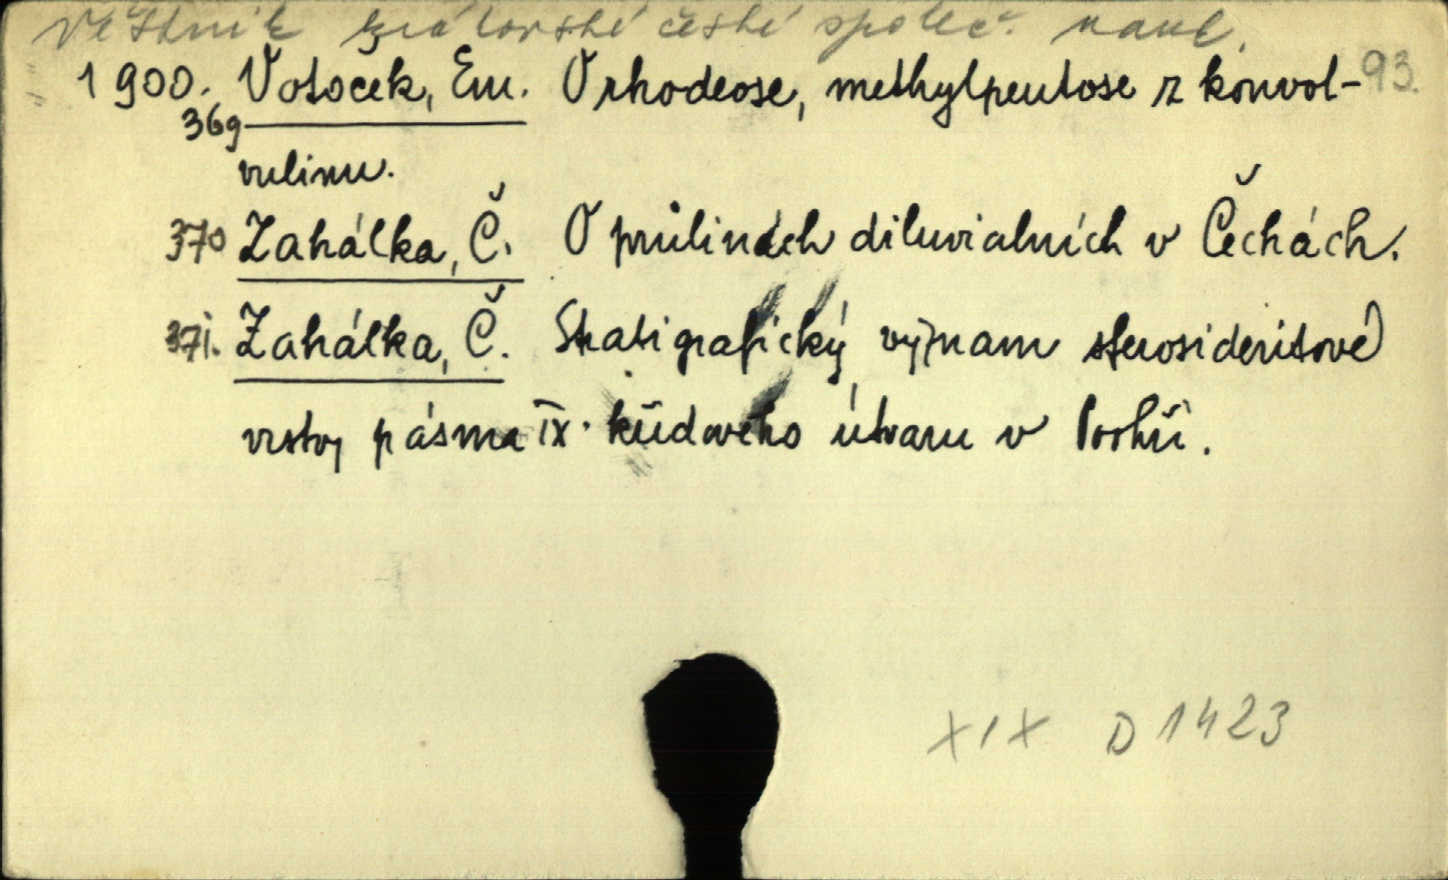 Věstník královské české společ. nauk.
93.
1900. Votoček, Em. O rhodeose, methylpentose z konvol-
369
vulinu.
370 Zahálka, Č. O průlinách diluvialních v Čechách.
371. Zahálka, Č. Stratigrafický význam sferosideritové
vrstvy pásma IX. křídového útvaru v Poohří.
XIX D 1423